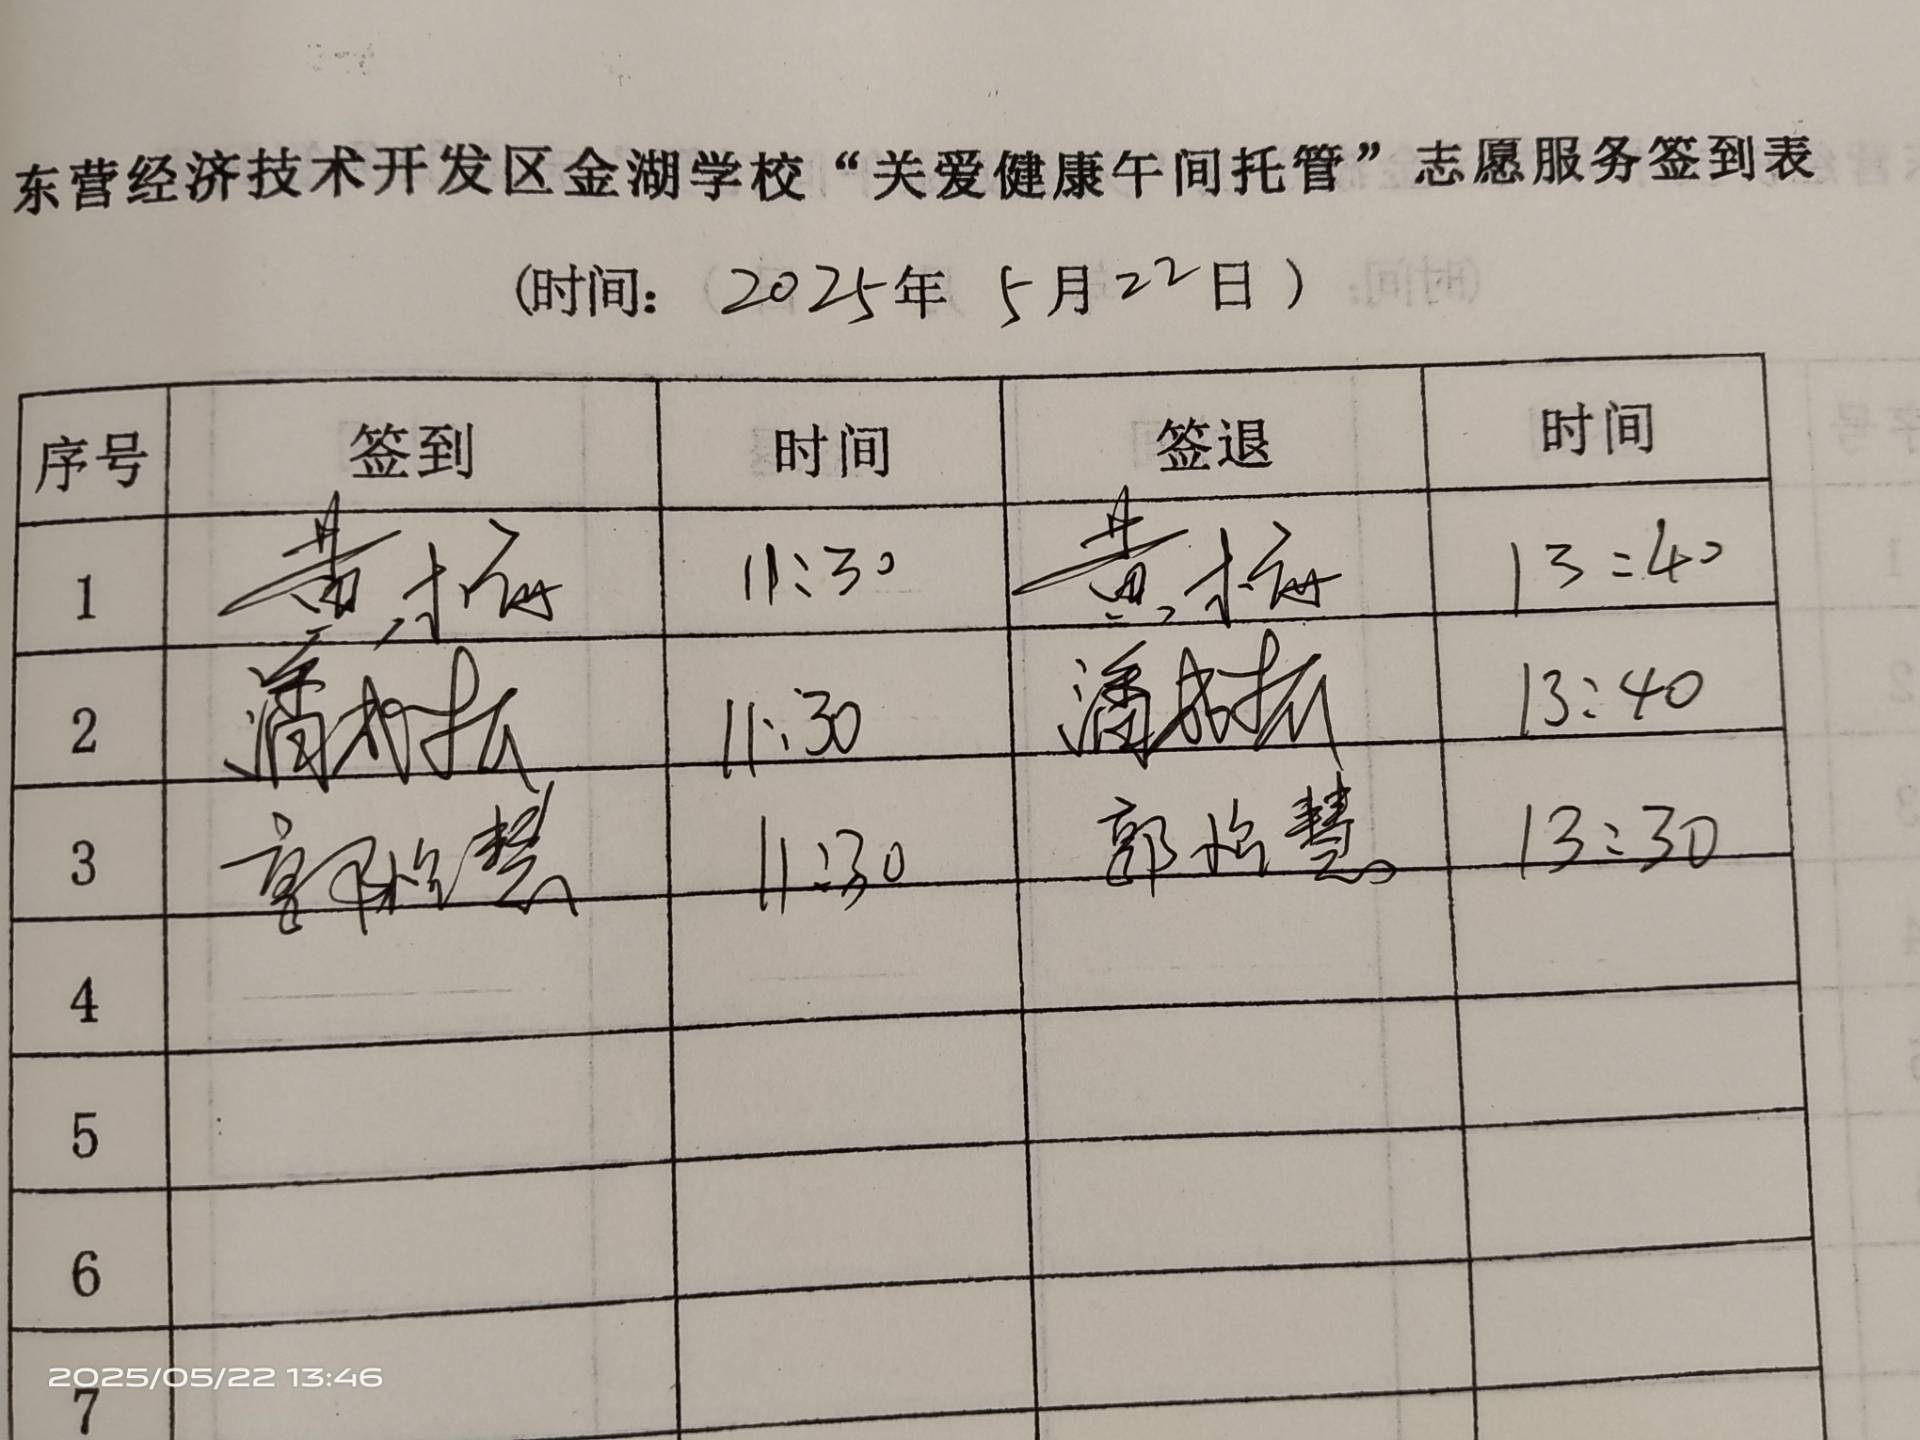 东营经济技术开发区金湖学校“关爱健康午间托管”志愿服务签到表
(时间: 2025年 5月22日)
序号 签到 时间 签退 时间
1 黄 11:30 黄 13:40
2 潘 11:30 潘 13:40
3 郭怡慧 11:30 郭怡慧 13:30
4
5
6
7
2025/05/22 13:46